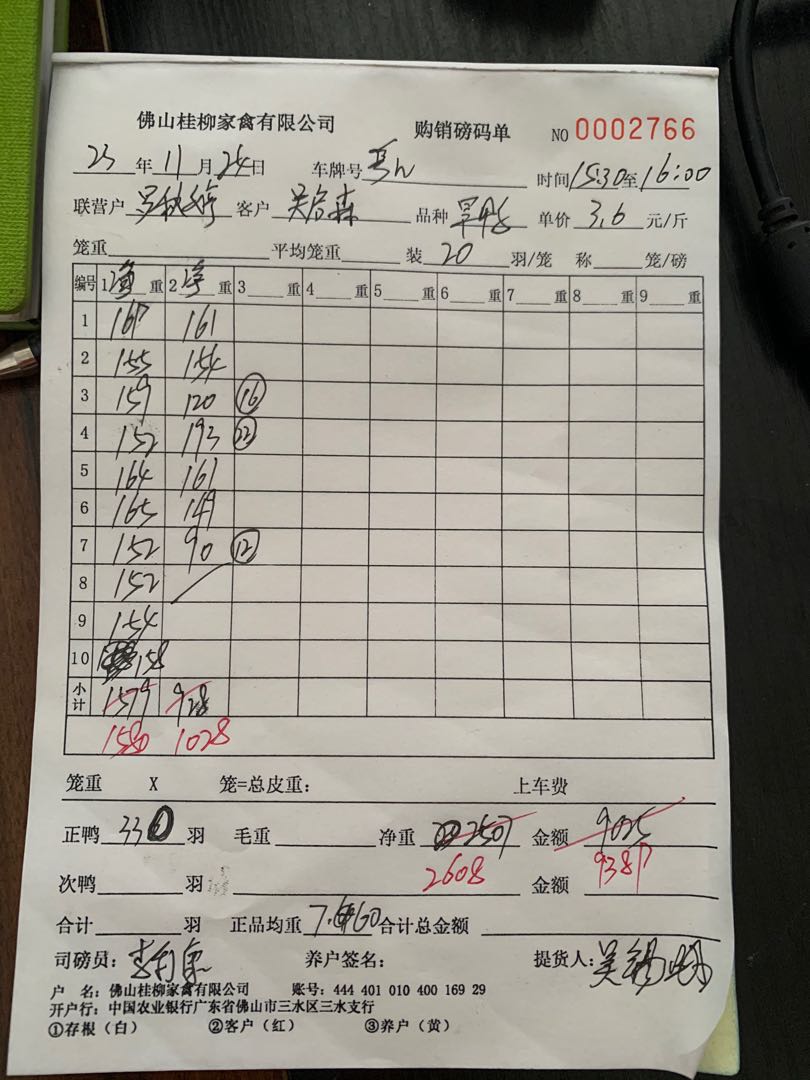 佛山桂柳家禽有限公司 购销磅码单 NO 0002766
23 年 11 月 24 日 车牌号 时间 15:30 至 16:00
联营户 客户 品种 单价 3.6 元/斤
笼重 平均笼重 装 20 羽/笼 称 笼/磅
编号 1 净 重 2 净 重 3 重 4 重 5 重 6 重 7 重 8 重 9 重
1 169 161
2 155 154
3 159 120 16
4 152 193 22
5 164 161
6 165 149
7 152 90 12
8 152
9 154
10 158
小计 1579 928
1580 1028
笼重 X 笼=总皮重: 上车费
正鸭 330 羽 毛重 净重 2507 金额 9025
2608 9389
次鸭 羽 金额
合计 羽 正品均重 7.60 合计总金额
司磅员: 养户签名: 提货人:
户 名: 佛山桂柳家禽有限公司 账号: 444 401 010 400 169 29
开户行: 中国农业银行广东省佛山市三水区三水支行
①存根(白) ②客户(红) ③养户(黄)